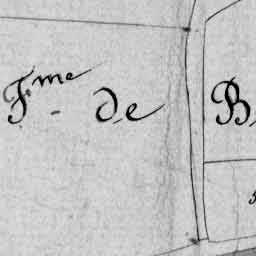 F.me de B